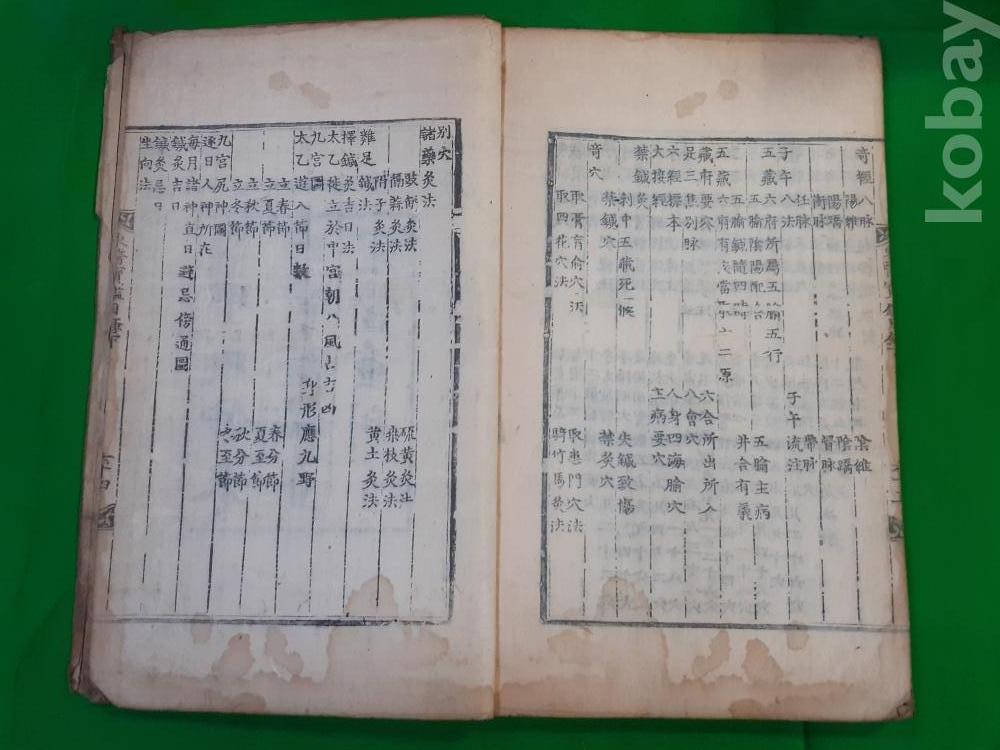 奇經八脉
陽維 陰維
陽蹻 陰蹻
衝脉 督脉
任脉 帶脉
子午八法 子午流注
五藏六府所屬五腧五行
五腧陰陽配合 五腧主病
五腧鍼隨四時 井合有義
五藏六府有疾當取十二原
藏府要穴 六合所出所入
是三焦別脉 八會穴
六經標本 人身四海腧穴
大接經 主病要穴
禁鍼灸
刺中五藏死候 失鍼致傷
禁鍼穴 禁灸穴
奇穴
取膏肓俞穴法 取患門穴法
取四花穴法 騎竹馬灸法
別穴
諸藥灸法
豉餠灸法 硫黃灸法
隔蒜灸法 桑枝灸法
附子灸法 黃土灸法
雜足鍼法
擇鍼灸吉日法
太乙徙立於中宮朝八風占吉凶
九宮圖 身形應九野
太乙遊八節日數
立春節 春分節
立夏節 夏至節
立秋節 秋分節
立冬節 冬至節
九宮尻神圖
逐日人神所在
每月諸神直日避忌傍通圖
鍼灸吉日
鍼灸忌日
坐向法
kobay